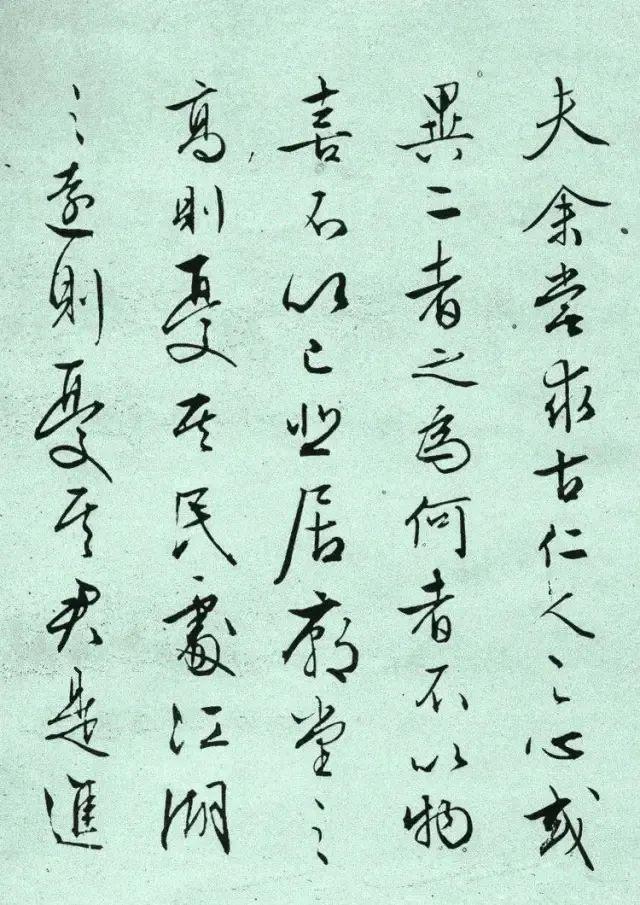 夫余嘗求古仁人之心或
異二者之為何者不以物
喜不以己悲居廟堂之
高則憂其民處江湖
之遠則憂其君是進